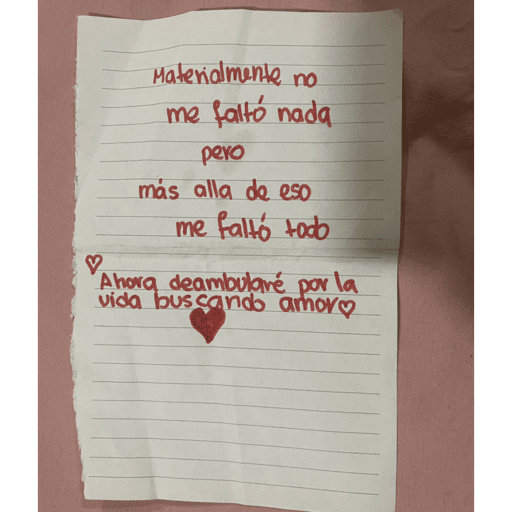 Materialmente no
me faltó nada
pero
más alla de eso
me faltó todo
Ahora deambularé por la
vida buscando amor